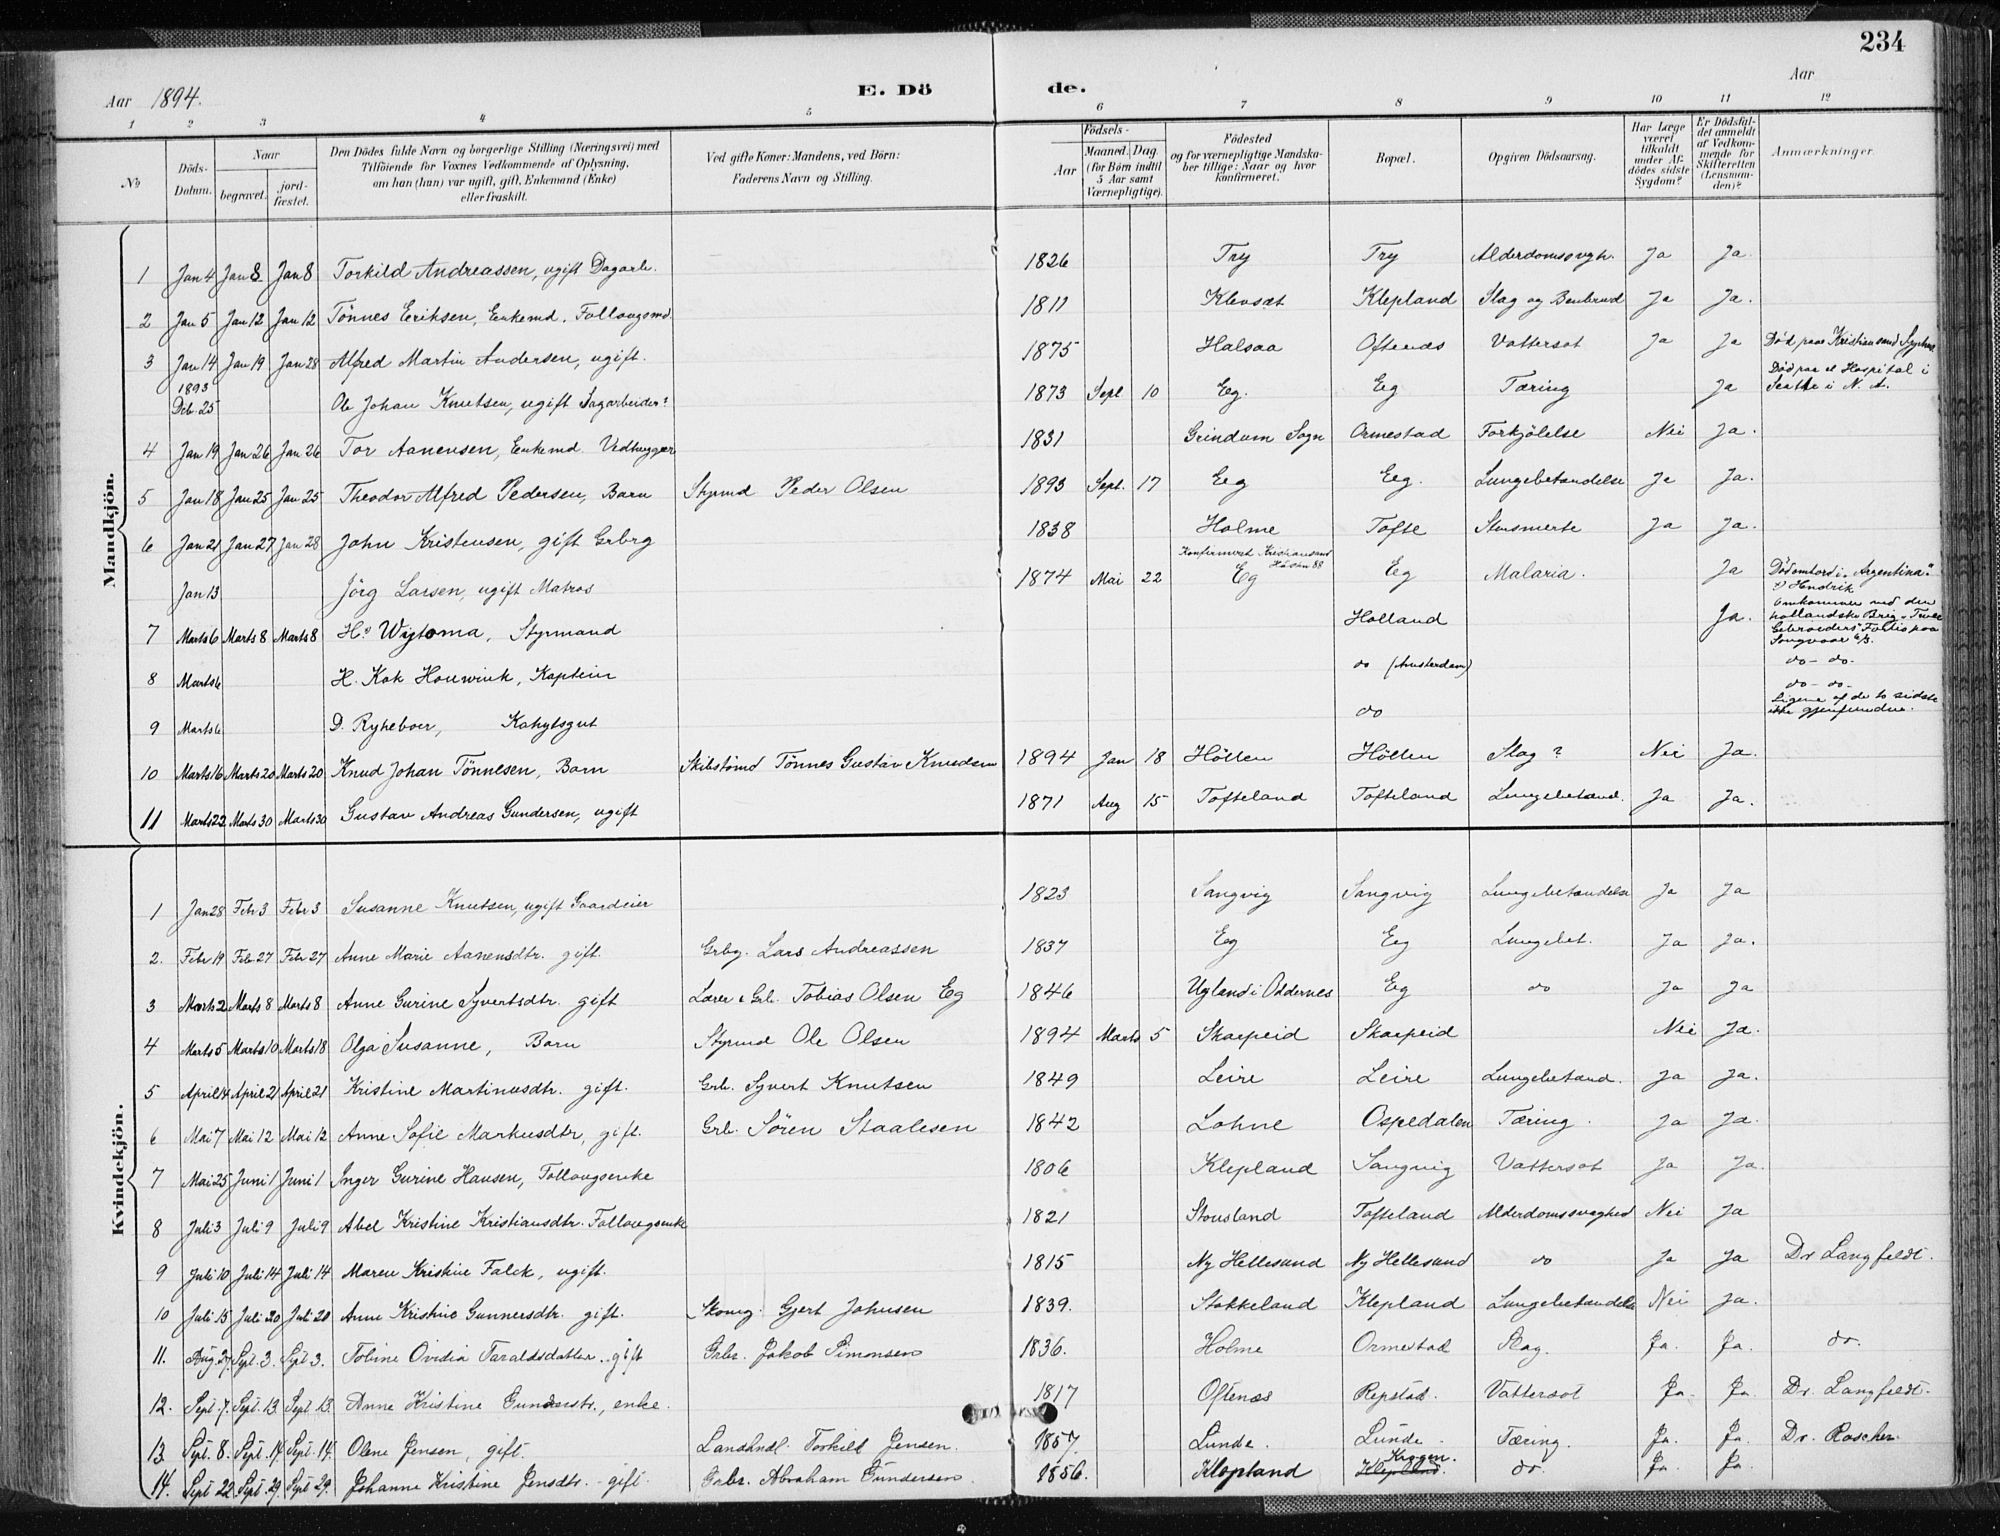 234
Aar 1894.
E. Dö de.
Aar
1 2 3 4 5 6 7 8 9 10 11 12
No
Döds-Datum.
Naar
begravet.
jord-fæstet.
Den Dödes fulde Navn og borgerlige Stilling (Næringsvei) med
Tilföiende for Voxnes Vedkommende af Oplysning,
om han (hun) var ugift, gift, Enkemand (Enke)
eller fraskilt.
Ved gifte Koner: Mandens, ved Börn:
Faderens Navn og Stilling.
Födsels-
Aar
Maaned. Dag.
(for Börn indtil
5 Aar samt
Værnepligtige).
Födested
og for værnepligtige Mandska-
ber tillige: Naar og hvor
konfirmeret.
Bopæl.
Opgiven Dödsaarsag.
Har Læge
været
tilkaldt
under Af-
dödes sidste
Sygdom?
Er Dödsfal-
det anmeldt
af Vedkom-
mende for
Skifteretten
(Lensman-
den)?
Anmærkninger.
Mandkjön.
1 Jan 4 Jan 8 Jan 8 Torkild Andreassen, ugift Dagarb. 1826 Try Try Alderdomssvgh. Ja Ja.
2 Jan 5 Jan 12 Jan 12 Tönnes Eriksen, Enkemd. Follougsmd. 1811 Klevset Klepland Slag og Benbrud Ja Ja.
3 Jan 14 Jan 19 Jan 28 Alfred Martin Andersen, ugift. 1875 Halsaa Oftenes Vattersot Ja Ja Död paa Kristiansand Sygehus
1893 Deb. 25 Ole Johan Knutsen, ugift Sagarbeider? 1873 Sept 10 Eg. Eg Tæring Ja Död paa et Hospital i
Seattle i N. A.
4 Jan 19 Jan 26 Jan 26 Tor Aanensen, Enkemd. Vedhugger 1831 Grindum Sogn Ormestad Forkjölelse Nei Ja.
5 Jan 18 Jan 25 Jan 25 Theodor Alfred Pedersen, Barn Styrmd Peder Olsen 1893 Sept. 17 Eg Eg. Lungebetændelse Ja Ja.
6 Jan 21 Jan 27 Jan 28 John Kristensen, gift Grbrg 1838 Holme Tofte Stensmerte Ja Ja.
Konfirmeret Kristiansand
Hösten 88
Jan 13 Jörg Larsen, ugift Matros 1874 Mai 22 Eg Eg Malaria. Ja Död ombord i "Argentina"
7 Marts 6 Marts 8 Marts 8 Hs Wijtoma, Styrmand Holland Ja. Omkommen med den
hollandske Brig "Twee
Gebroeders" Forlis paa
Songvaar 6/3.
8 Marts 6 H. Kok Houwink, Kaptein do (Amsterdam) do- do-
9 Marts 6 D. Rijkeboer, Kahytsgut do do- do-
Ligene af de to sidste
ikke gjenfundne.
10 Marts 16 Marts 20 Marts 20 Knud Johan Tönnesen, Barn Skibstömd Tönnes Gustav Knudsen 1894 Jan 18 Höllen Höllen Slag? Nei Ja.
11 Marts 22 Marts 30 Marts 30 Gustav Andreas Gundersen, ugift 1871 Aug 15 Tofteland Tofteland Lungebetænd. Ja Ja.
Kvindekjön.
1 Jan 28 Febr 3 Febr 3 Susanne Knutsen, ugift Gaardeier 1823 Sangvig Sangvig Lungebetændelse Ja Ja
2. Febr 19 Feb. 27 Febr 27 Anne Marie Aanensdtr. gift. Grbg. Lars Andreassen 1837 Eg Eg Lungebet. Ja Ja.
3 Marts 2 Marts 8 Marts 8 Anne Gurine Syvertsdtr. gift Lærer & Grb. Tobias Olsen Eg 1846 Ugland i Oddernes Eg do Ja Ja
4 Marts 5 Marts 10 Marts 18 Olga Susanne, Barn Styrmd Ole Olsen 1894 Marts 5 Skarpeid Skarpeid Nei Ja.
5 April 14 April 21 April 21 Kristine Martinusdtr. gift. Grb. Syvert Knutsen 1849 Leire Leire Lungebetænd. Ja Ja.
6 Mai 7 Mai 12 Mai 12 Anne Sofie Markusdtr, gift. Grb. Sören Staalesen 1842 Lohne Ospedalen Tæring. Ja Ja.
7 Mai 25 Juni 1 Juni 1 Inger Gurine Hansen, Follougsenke 1806 Klepland Sangvig Vattersot Ja Ja.
8 Juli 3 Juli 9 Juli 9 Abel Kristine Kristiansdtr. Follougsenke 1821 Stousland Tofteland Alderdomssvaghed Nei Ja
9 Juli 10 Juli 14 Juli 14 Maren Kristine Falck, ugift. 1815 Ny Hellesund Ny Hellesund do Ja Ja Dr Langfeldt.
10 Juli 15 Juli 20 Juli 20 Anne Kristine Gunnersdtr. gift. Skomg. Gjert Johnsen 1839. Stokkeland Klepland Lungebetændelse Nei Ja.
11. Aug. 27. Sept. 3. Sept 3. Tobine Ovidia Taraldsdatter.. gift Grbr. Jakob Simonsen 1836. Holme Ormestad Slag. Ja. Ja. do.
12. Sept. 7. Sept. 13. Sept. 13. Anne Kristine Gundersdtr., enke. 1817 Oftenæs Repstad. Vattersot Ja. Ja. Dr. Langfeldt.
13. Sept. 8. Sept. 14. Sept. 14. Olene Jensen, gift. Landhndl. Torkild Jensen. 1857. Lunde. Lunde. Tæring. Ja. Ja. Dr. Roscher.
14. Sept 22. Sept. 29. Sept 29. Johanne Kristine Jensdtr. gift. Grbr. Abraham Gundersen. 1856. Klepland Klepland. Krogen. do. Ja. Ja.